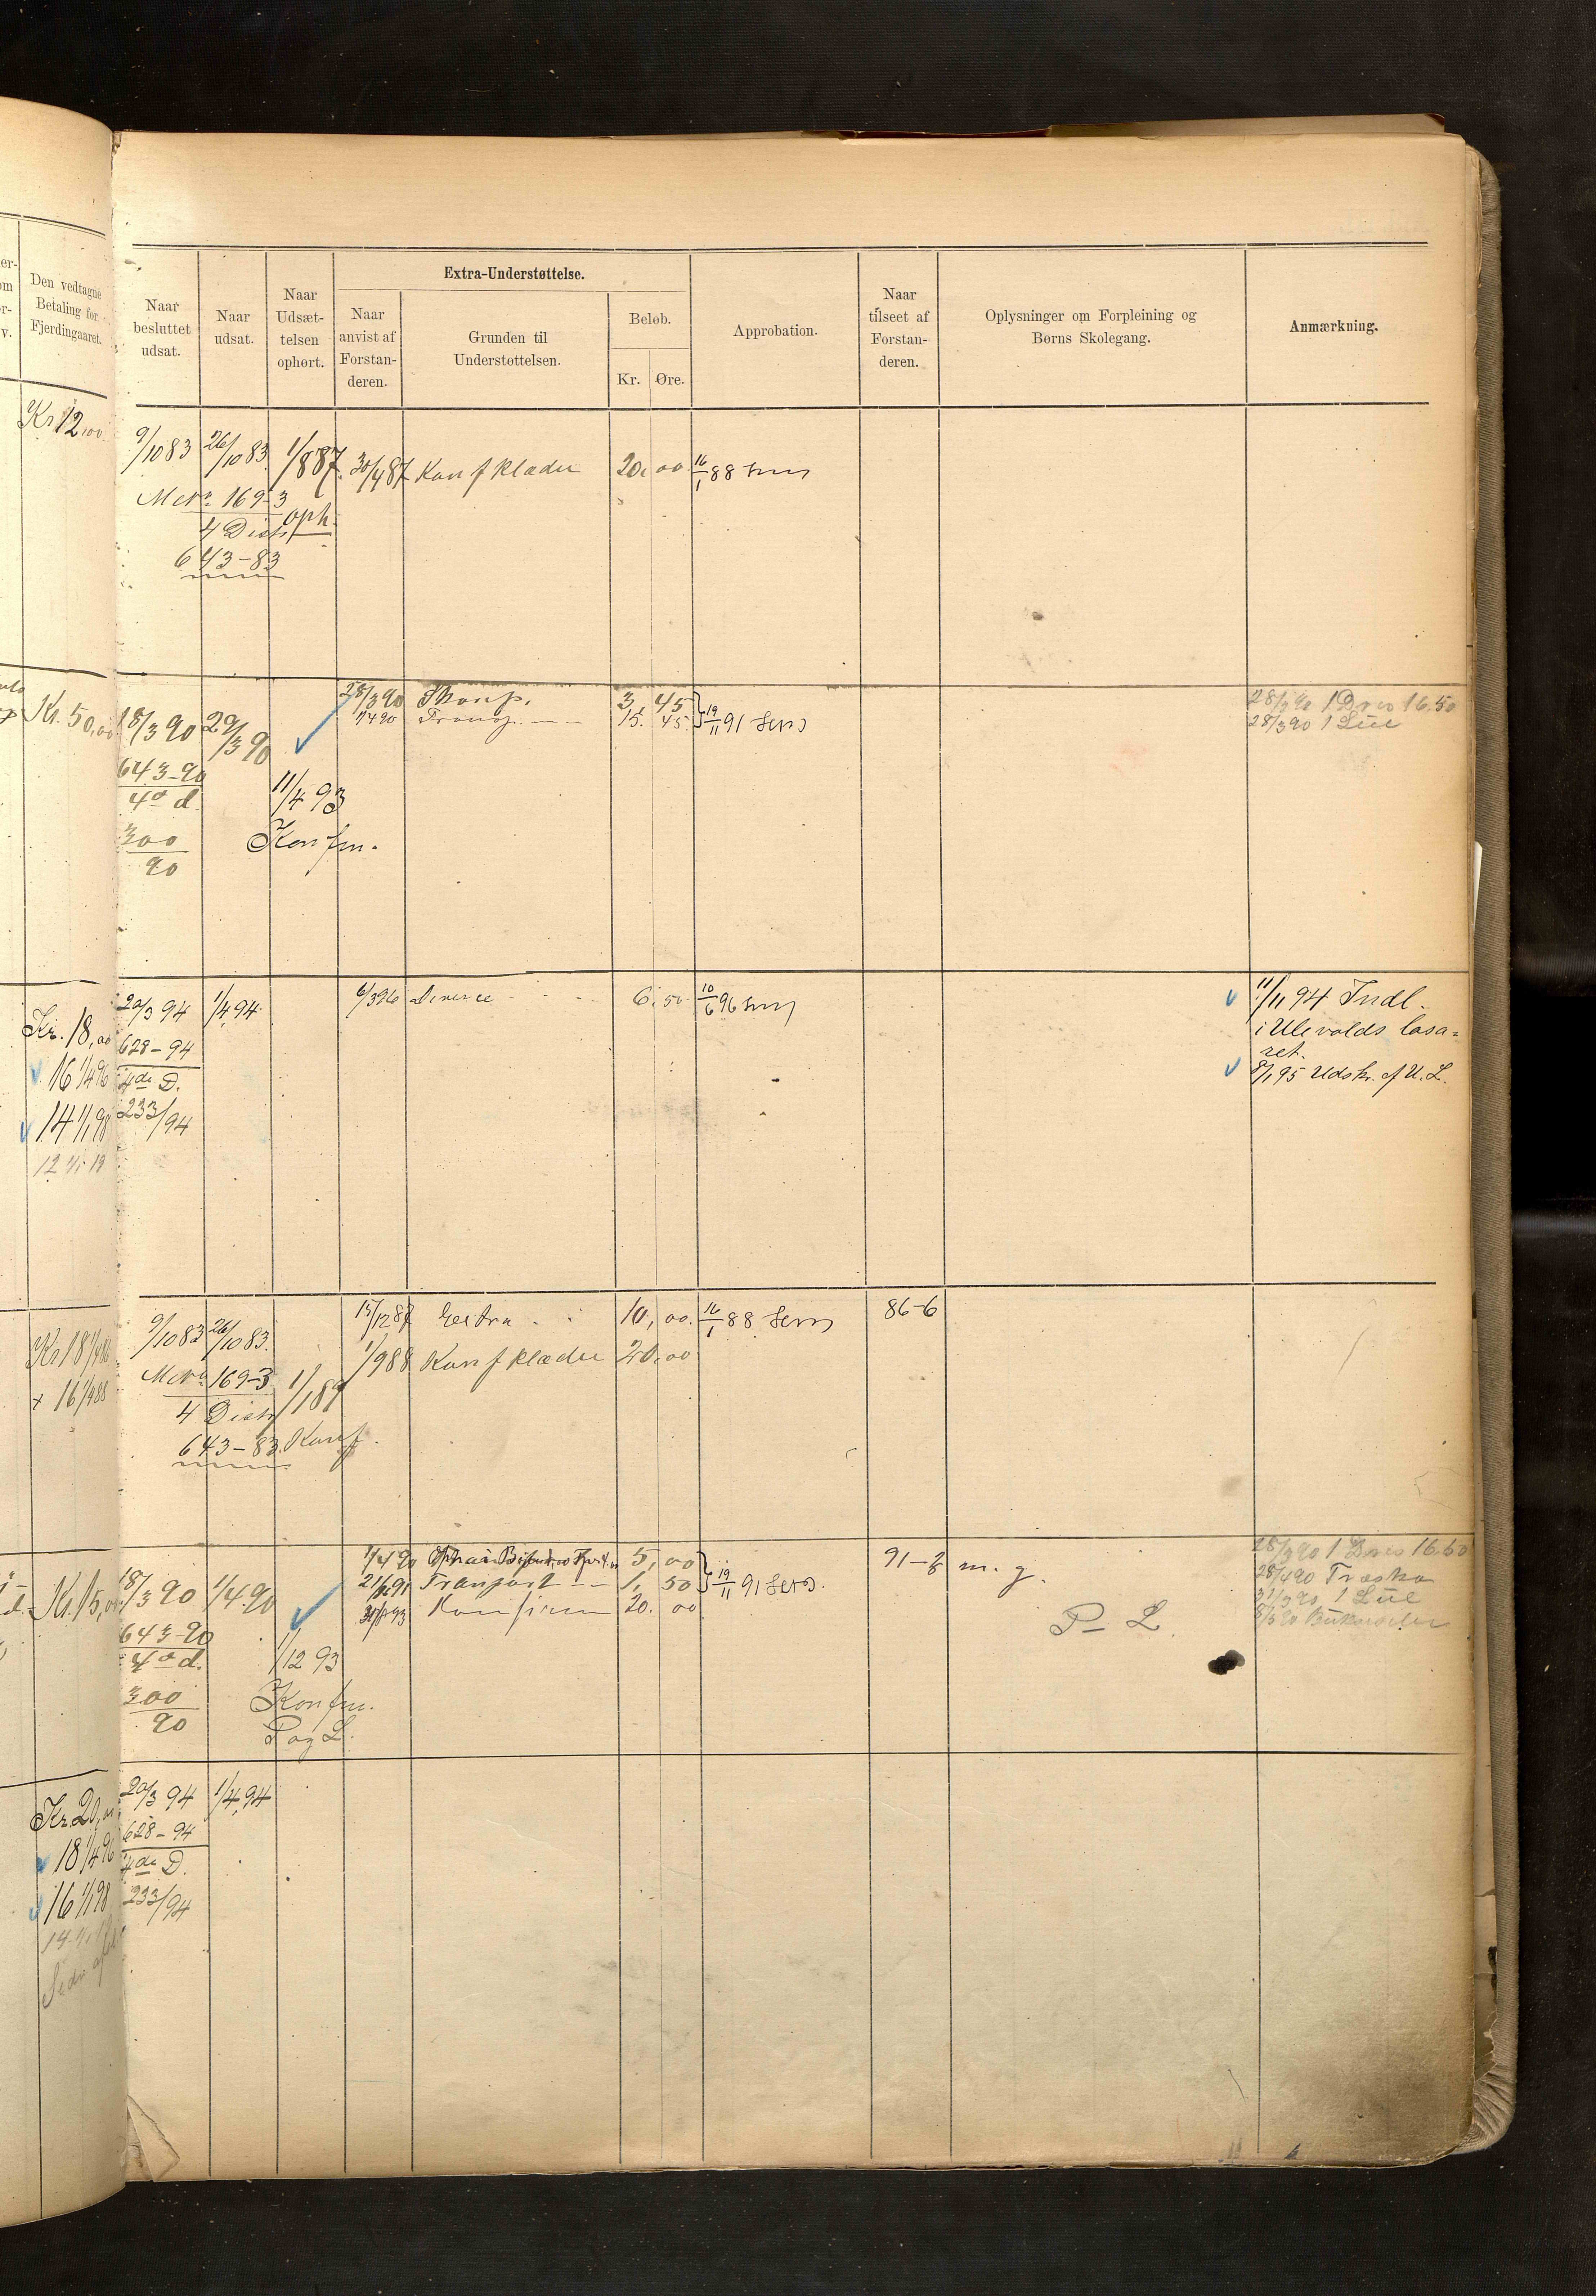 Den vedtagne
Betaling for
Fjerdingaaret.
Naar
besluttet
udsat.
Naar
udsat.
Naar
Udsæt-
telsen
ophørt.
Extra-Understøttelse.
Naar
anvist af
Forstan-
deren.
Grunden til
Understøttelsen.
Beløb.
Kr. Øre.
Approbation.
Naar
tilseet af
Forstan-
deren.
Oplysninger om Forpleining og
Børns Skolegang.
Anmærkning.
Kr. 12,00
9/10 83 26/10 83 1/8 87 30/4 87 Konf klæder 20, 00 16/1 88
169-3
4 Distr oph.
643-83
Kr. 50,00 18/3 90 29/3 90 28/3 90 3, 45
1/4 90 Transp. 15, 45 19/11 91
28/3 90 16.50
28/3 90 1
643-90
4de d.
11/4 93
300
90
Konfm.
Kr. 18,00 20/3 94 1/4 94 6/3 96 Diverse 6, 50 10/6 96
11/11 94 Indl.
i Ulevolds lasa=
ret.
8/1 95 Udskr. af U. L.
628-94
16 1/4 96 4de D.
14 1/1 98 233/94
9/10 83 26/10 83 15/12 87 Extra 10, 00 16/1 88 86-6
Kr 18 1/4 86
1/9 88 Konf klæder 20, 00
169-3
+ 16 1/4 88
4 Distr 1/1 89
643-83 Konf.
Kr. 15,00 18/3 90 1/4 90 1/4 90 5, 00
21/ 91 Transport 1, 50 19/11 91
93 Konfirm 20, 00
91-8 m. g.
P- L.
28/3 90 1 Dres 16.50
28/4 90 Træsko
31/3 90 1
643-90
4de d.
1/12 93
300
90
Konfm.
P og L.
Kr. 20,00 20/3 94 1/4 94
628-94
18 1/4 96 4de D.
16 1/1 98 233/94